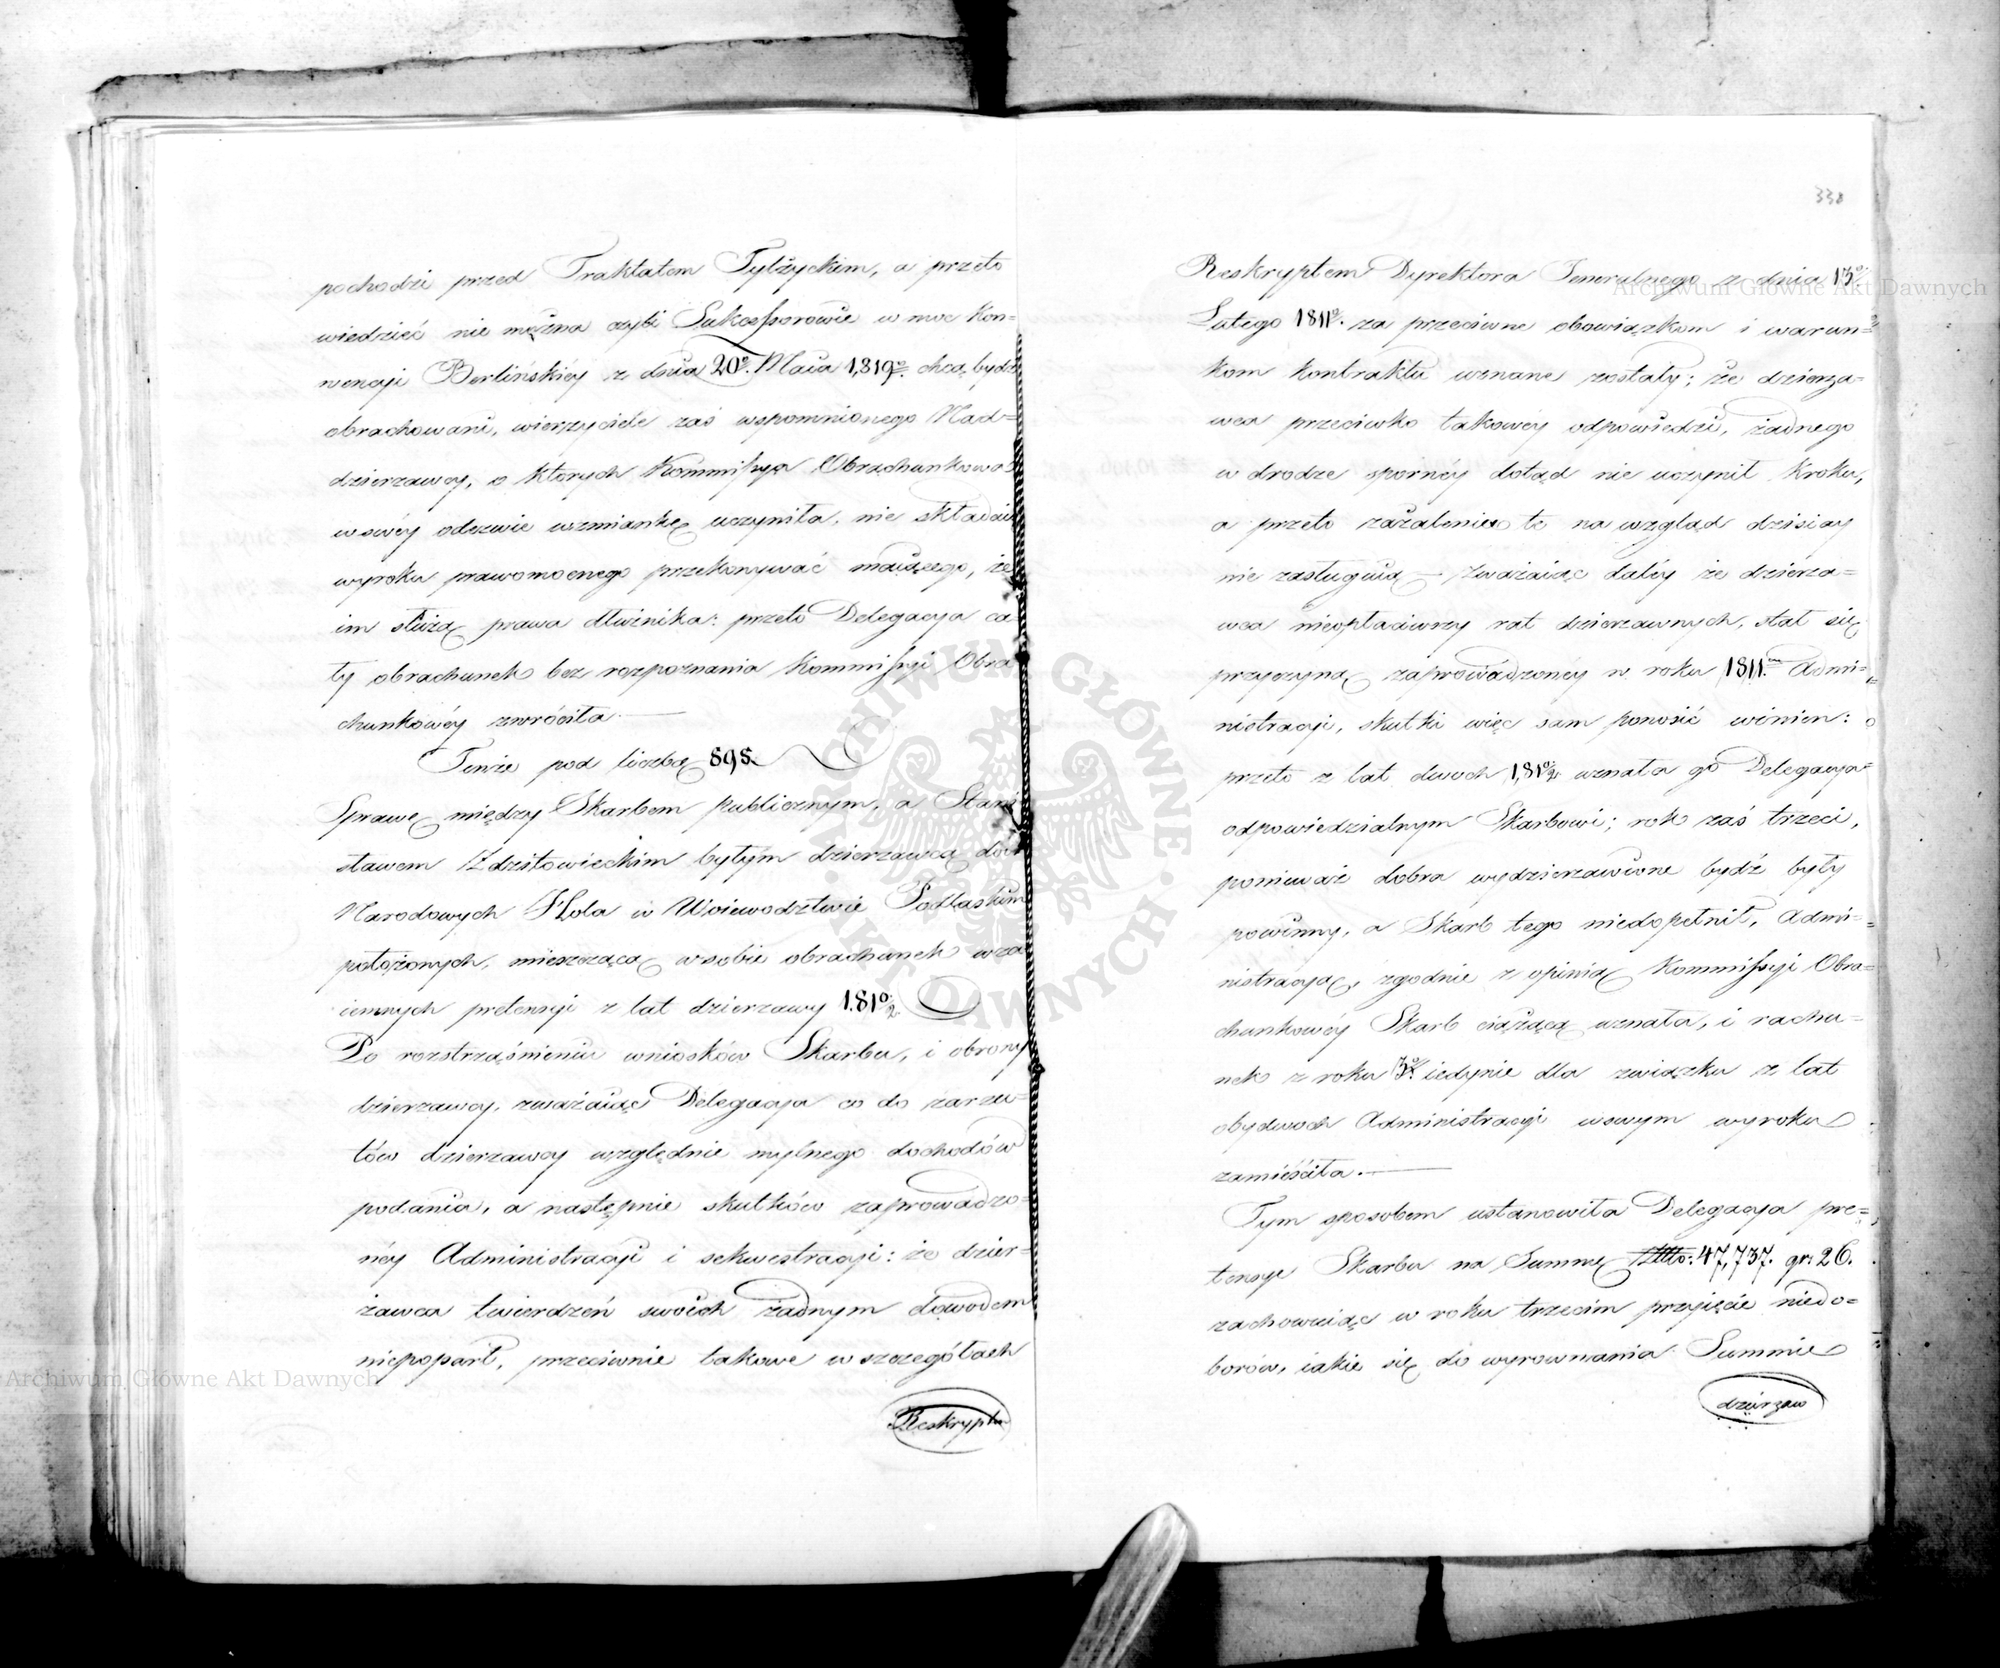 pochodzi przed Traktatem Tylżyckim, a przeto
wiedzieć nie można czyli Sukcessorowie w moc Kon=
wencyi Berlińskiéy z dnia 20º. Maia 1,819º. chcą bydź
obrachowani, wierzyciele zaś wspomnionego Nad=
dzierzawcy, o których Kommissya Obrachunkowa
w swéy odezwie wzmiankę uczyniła, nie składaią
wyroku prawomocnego przekonywać maiącego, że
im służą prawa dłużnika: przeto Delegacya ca
ły obrachunek bez rozpoznania Kommissyi Obra
chunkowéy zwróciła.
Tenże pod liczbą 898.
Sprawę między Skarbem publicznym, a Stani
sławem Zdzitowieckim byłym dzierzawcą dóbr
Narodowych w Woiewodztwie Podlaskim
położonych, mieszczącą w sobie obrachunek wza
iemnych pretensyi z lat dzierzawy 181º/2
Po rozstrząśnieniu wniosków Skarbu, i obrony
dzierzawcy, zważaiąc Delegacya co do zarzu=
tów dzierzawcy względnie mylnego dochodów
podania, a następnie skutków zaprowadzo=
néy Administracyi i sekwestracyi: że dzier=
żawca twierdzeń swoich żadnym dowodem
niepoparł, przeciwnie takowe w szczegółach
Reskryptem
338
Reskryptem Dyrektora Jeneralnego z dnia 13º
Lutego 1811º. za przeciwne obowiązkom i warun=
kom kontraktu uznane zostały; że dzierza=
wca przeciwko takowéy odpowiedzi, żadnego
w drodze spornéy dotąd nie uczynił kroku,
a przeto zażalenie to na wzgląd dzisiay
nie zasługuią — zważaiąc daléy że dzierza=
wca nieopłaciwszy rat dzierzawnych, stał się
przyczyną zaprowadzonéy w roku 1811m Admi=
nistracyi, skutki więc sam ponosić winien:
przeto z lat dwoch 1,81º/2 uznała go Delegacya
odpowiedzialnym Skarbowi; rok zaś trzeci,
ponieważ dobra wydzierzawione bydź były
powinny, a Skarb tego niedopełnił, Admi=
nistracyą, zgodnie z opinią Kommissyi Obra=
chunkowéy Skarb ciążącą uznała, i rachu=
nek z roku 3º. iedynie dla związku z lat
obydwoch Administracyi w swym wyroku
zamieściła.
Tym sposobem ustanowiła Delegacya pre=
tensye Skarbu na Summę Złłto: 47,737. gr: 26.
zachowuiąc w roku trzecim przyięcie niedo=
borów, iakie się do wyrownania Summie
dzierzaw
Archiwum Główne Akt Dawnych
Archiwum Główne Akt Dawnych
ARCHIWUM GŁÓWNE AKT DAWNYCH